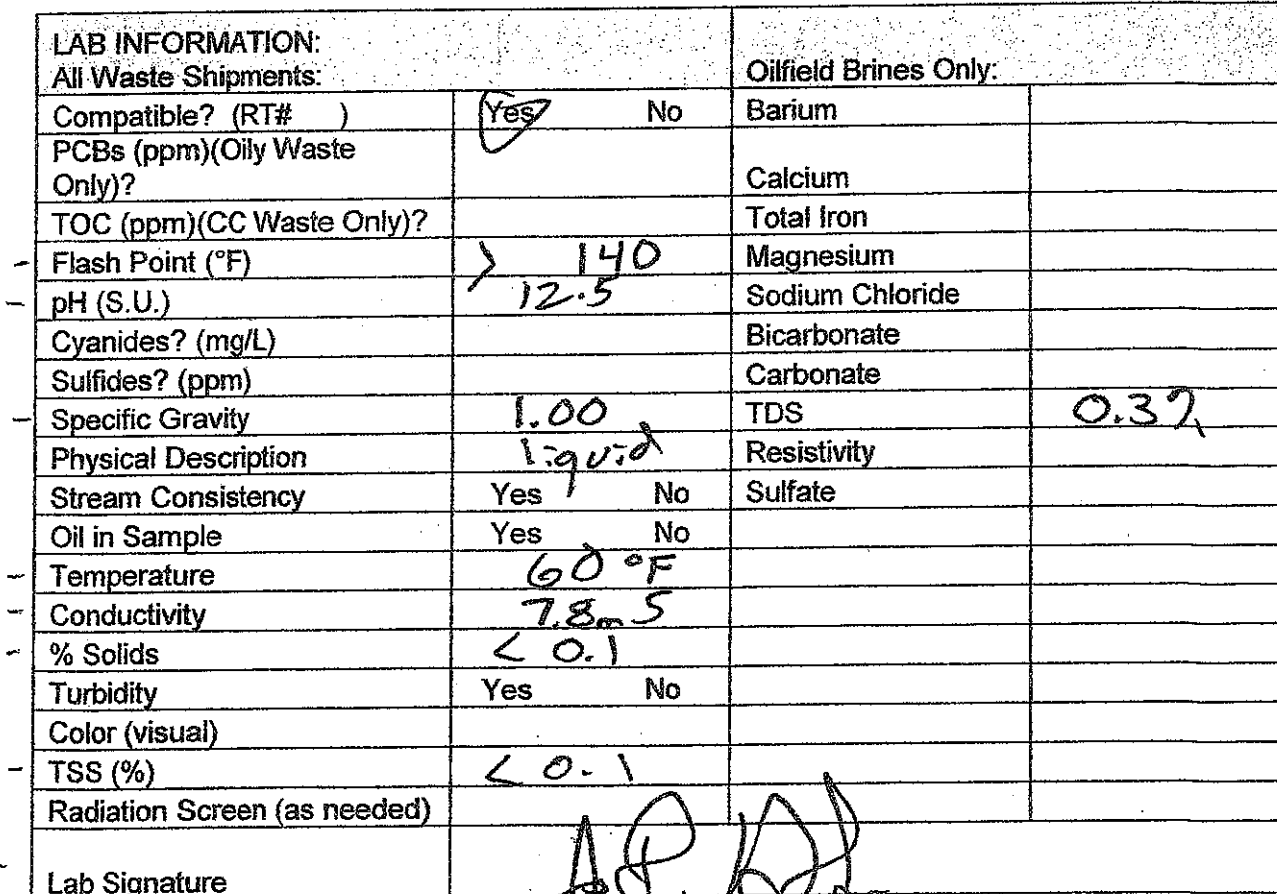 LAB INFORMATION:
All Waste Shipments:
Oilfield Brines Only:
Compatible? (RT# ) Yes No Barium
PCBs (ppm)(Oily Waste
Only)? Calcium
TOC (ppm)(CC Waste Only)? Total Iron
Flash Point (°F) > 140 Magnesium
pH (S.U.) 12.5 Sodium Chloride
Cyanides? (mg/L) Bicarbonate
Sulfides? (ppm) Carbonate
Specific Gravity 1.00 TDS 0.3%
Physical Description liquid Resistivity
Stream Consistency Yes No Sulfate
Oil in Sample Yes No
Temperature 60 °F
Conductivity 7.8 mS
% Solids < 0.1
Turbidity Yes No
Color (visual)
TSS (%) < 0.1
Radiation Screen (as needed)
Lab Signature